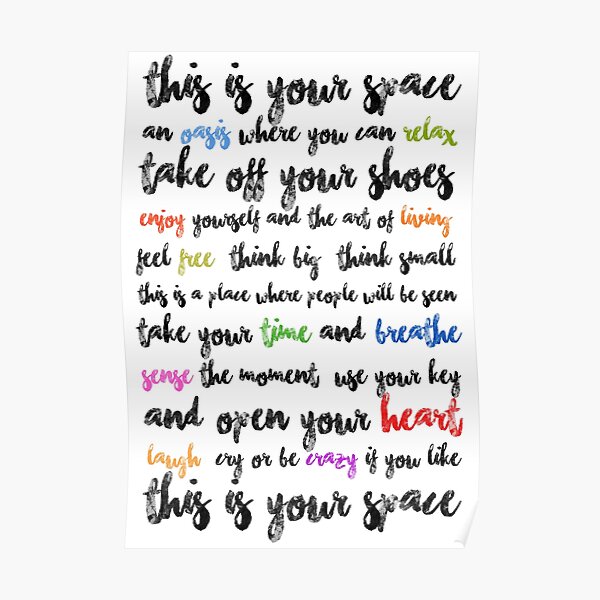 this is your space
an oasis where you can relax
take off your shoes
enjoy yourself and the art of living
feel free think big think small
this is a place where people will be seen
take your time and breathe
sense the moment use your key
and open your heart
laugh cry or be crazy if you like
this is your space